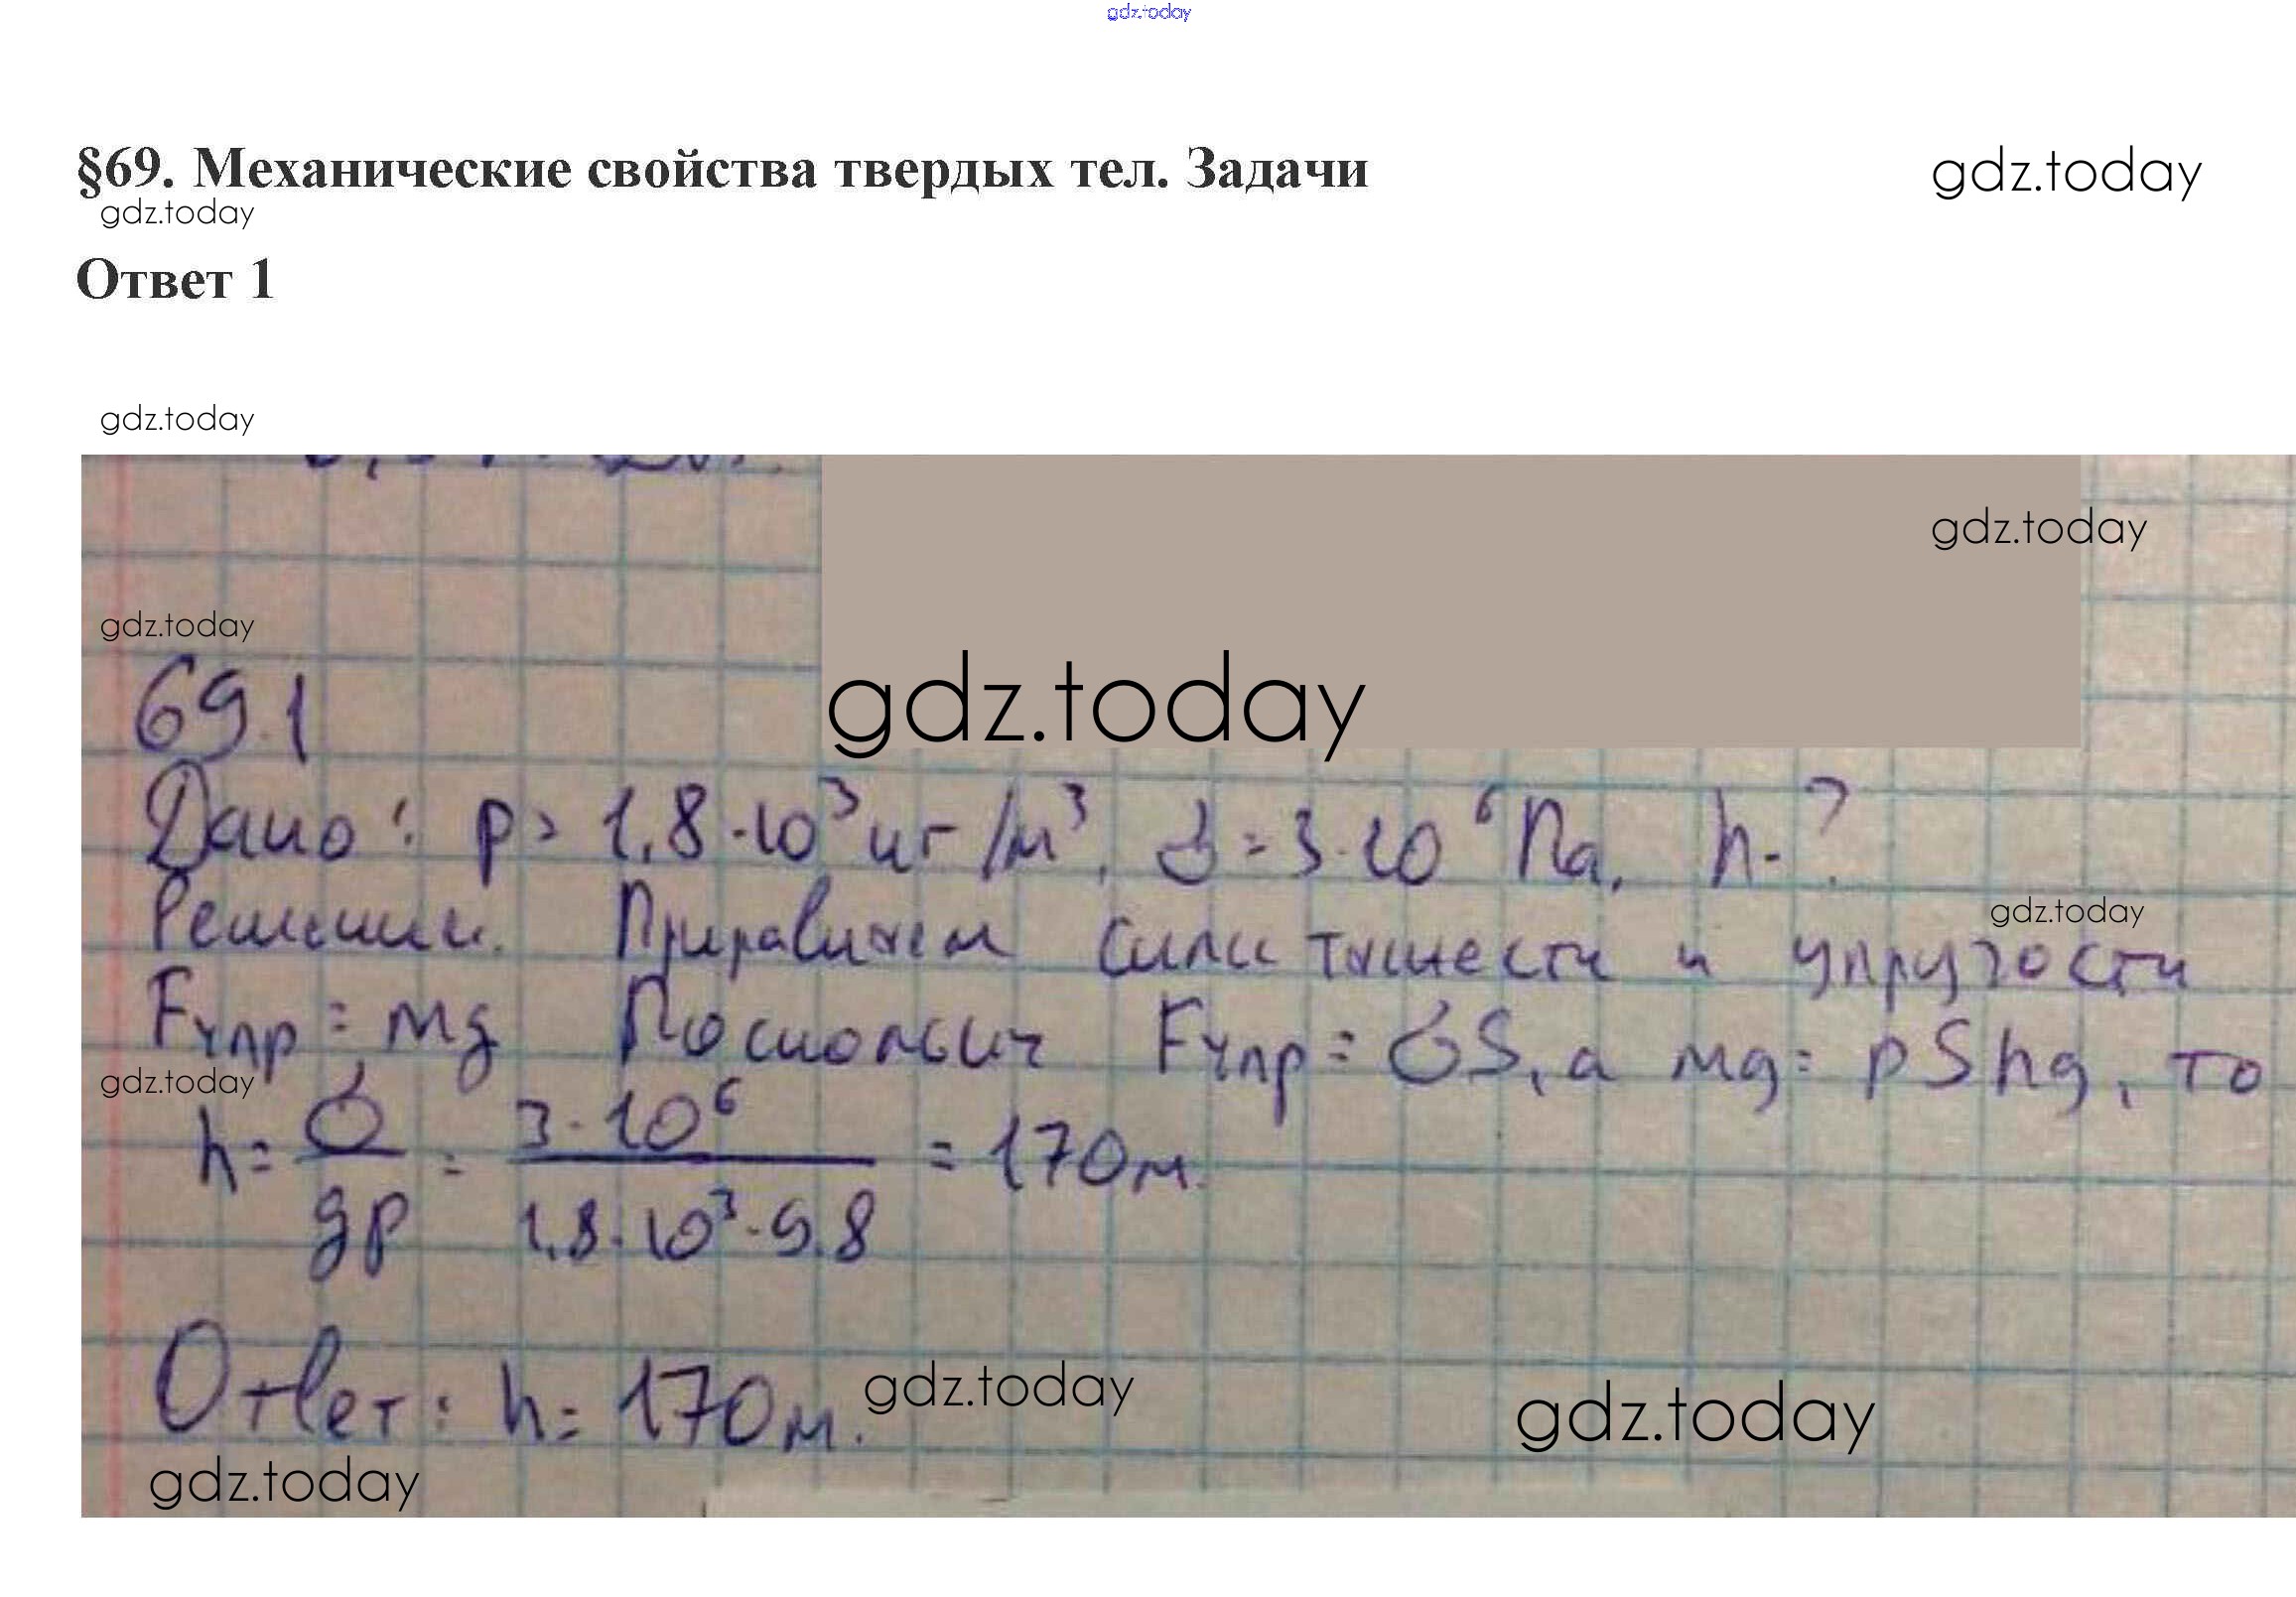 gdz.today
§69. Механические свойства твердых тел. Задачи
gdz.today
gdz.today
Ответ 1
gdz.today
gdz.today
gdz.today
69.1
gdz.today
Дано: ρ = 1,8·10³ кг/м³, σ = 3·10⁶ Па. h - ?
Решение. Приравняем силы тяжести и упругости
gdz.today
Fупр = mg Поскольку Fупр = σS, а mg = ρShg, то
gdz.today
h = σ/gρ = 3·10⁶/1,8·10³·9.8 = 170 м.
Ответ: h = 170 м.
gdz.today
gdz.today
gdz.today